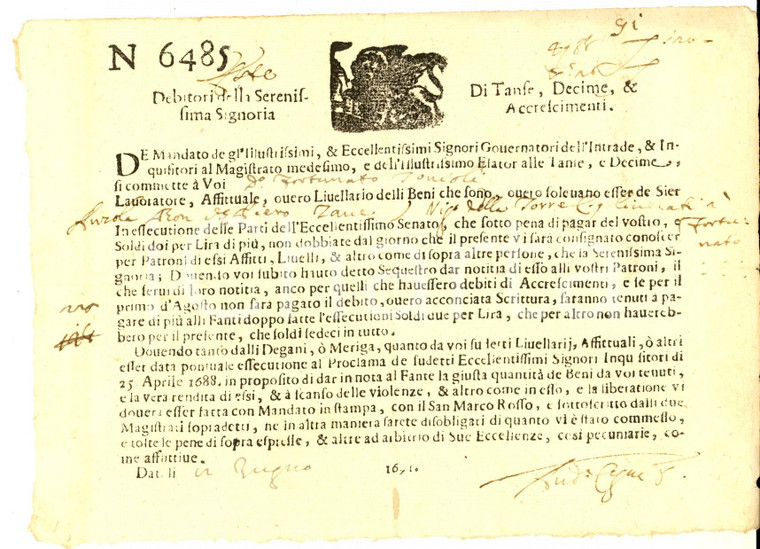 N 6485
Debitori della Serenis-
sima Signoria
Di Tanse, Decime, &
Accrescimenti.
DE Mandato de gl'Illustrissimi, & Eccellentissimi Signori Gouernatori dell'Intrade, & In-
quisitori al Magistrato medesimo, e dell'Illustrissimo Esator alle Tanse, e Decime,
si commette à Voi Dº Fortunato
Lauoratore, Affittuale, ouero Liuellario delli Beni che sono, ouero soleuano esser de Sier
della Torre
In essecutione delle Parti dell'Eccellentissimo Senato, che sotto pena di pagar del vostro, e
Soldi doi per Lira di più, non dobbiate dal giorno che il presente vi sarà consignato conoscer
per Patroni di essi Affitti, Liuelli, & altro come di sopra altre persone, che la Serenissima Si-
gnoria; Douendo voi subito hauto detto Sequestro dar notitia di esso alli vostri Patroni, il
che serui di loro notitia, anco per quelli che hauessero debiti di Accrescimenti, e se per il
primo d'Agosto non sarà pagato il debito, ouero acconciata Scrittura, saranno tenuti a pa-
gare di più alli Fanti doppo fatte l'essecutioni Soldi due per Lira, che per altro non hauereb-
bero per il presente, che soldi sedeci in tutto.
Douendo tanto dalli Degani, ò Meriga, quanto da voi su fetti Liuellarij, Affittuali, ò altri
esser data pontuale essecutione al Proclama de sudetti Eccellentissimi Signori Inquisitori di
25 Aprile 1688. in proposito di dar in nota al Fante la giusta quantità de Beni da voi tenuti,
e la vera rendita di essi, & à scanso delle violenze, & altro come in esso, e la liberatione vi
douerà esser fatta con Mandato in stampa, con il San Marco Rosso, e sottoscritto dalli due
Magistrati sopradetti, ne in altra maniera sarete disobligati di quanto vi è stato commesso,
e tolte le pene di sopra espresse, & altre ad arbitrio di Sue Eccellenze, così pecuniarie, co-
me afflittiue.
Dat. li Zugno 169